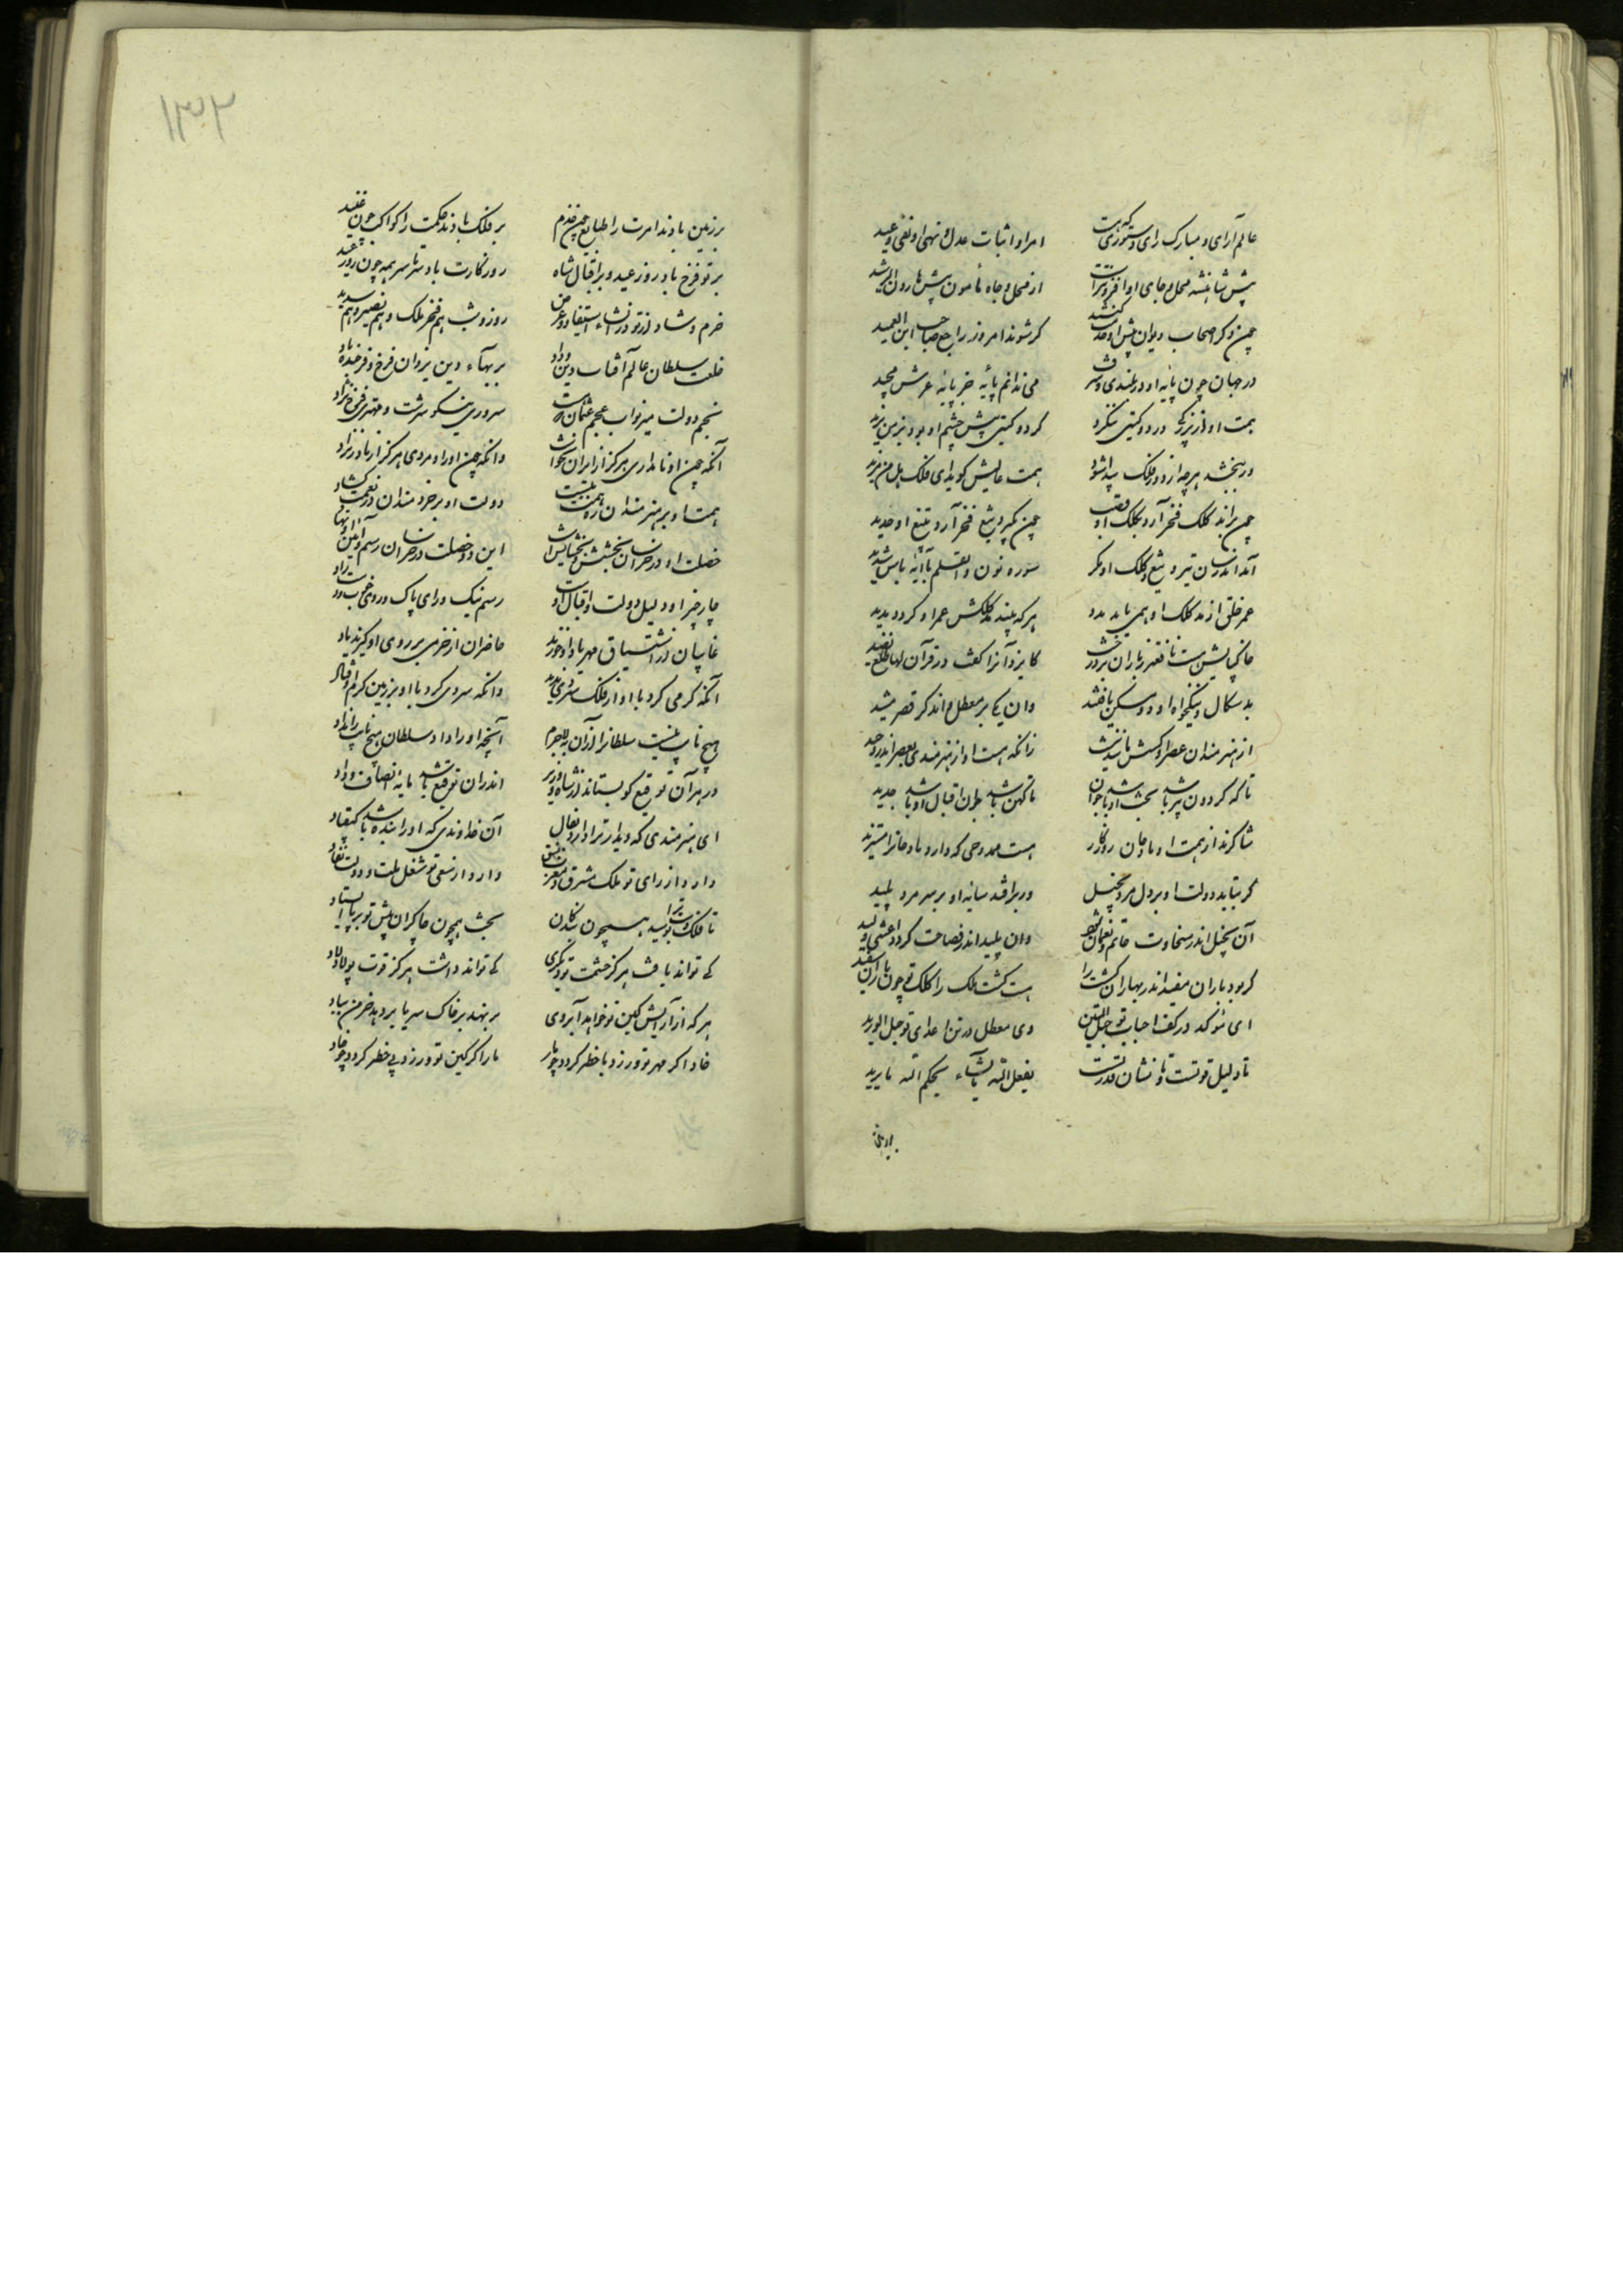 عالم آرای و مبارک رای دستوری که هست امر او اثبات عدل و نهی او نفی وعید
پیش شاهنشه محل و جای او افزونترست از محل و جاه مأمون پیش هارون الرشید
چون ذکر اصحاب دیوان پیش او خدمت کنند کر شوند امروز راجع صاحب ابن العمید
در جهان چون پایه او در بلندی و شرف می ندانم پایه جز پایه عرش مجید
همت او از بزرکی در دو کیتی ننکرد کر دو کیتی پیش چشم او بود بر من یزید
ور ببخشد هرچه از دور فلک پیدا شود همت عالیش کوید ای فلک هل من مزید
چون براند کلک فخر آرد بکلک او قصب چون بگیرد تیغ فخر آرد بتیغ او حدید
سوره نون والقلم با آیه بأس شدید
عمر خلق از مد کلک او همی یابد مدد هر که بیند مد کلکش عمر او کردد مدید
کایزد آنرا کفت در قرآن لها طلع نضید
بدسکال و نیکخواه او دو مسکن یافتند وان یکی بئر معطل واندکر قصر مشید
از هنرمندان عصر او کسش مانند نیست زانکه هست او از هنرمندی بعصر اندر وحید
تا که کردون پیر باشد بخت او باشد جوان تا کهن باشد جهان اقبال او باشد جدید
شاکرند از همت او مادحان روزکار هست ممدوحی که دارد مادحانرا مستزید
کر بتابد دولت او بر دل مرد بخیل ور برافتد سایه او بر سر مرد پلید
آن بخیل اندر سخاوت حاتم و نعمان شود وان پلید اندر فصاحت کردد اعشی و لبید
کر بود باران مفید اندر بهاران کشت را هست کشت ملک را کلک تو چون باران مفید
ای مؤکد در کف احباب تو حبل المتین وی معطل در تن اعدای تو حبل الورید
تا دلیل قوتست و تا نشان قدرتست یفعل الله ما یشاء یحکم الله ما یرید
بر زمین
۱۳۲
بر زمین بادند امرت را طبایع چون خدم بر فلک بادند حکمت را کواکب چون عبید
بر تو فرخ باد روز عید و بر اقبال شاه روزکارت باد سرتاسر همه چون روز عید
روز و شب هم فخر ملک و هم نصیر و هم سدید
خلعت سلطان عالم آفتاب دین و داد بر بهاء دین یزدان فرخ و فرخنده باد
سروری نیکو سرشت و مهتری فرخ نژاد
آنکه چون او نامداری هرکز از ایران نخواست وانکه چون او رادمردی هرکز از مادر نزاد
همت او بر هنرمندان ره همت ببست دولت او بر خردمندان در نعمت کشاد
خصلت او در خراسان بخشش و بخشایش است این دو خصلت در خراسان رسم و آیین او نهاد
چار چیز او دلیل دولت و اقبال اوست رسم نیک و رای پاک و روی خوب و دست راد
غایبان از اشتیاق مهر یاد او خورند حاضران از خرمی بر روی او کیرند یاد
آنکه کرمی کرد با او از فلک سردی ندید وانکه سردی کرد با او بر زمین کرم اوفتاد
هیچ نایب نیست سلطانرا از آن بهتر لاجرم آنچه او را داد سلطان هیچ نایب را نداد
در هر آن توقیع کو بستاند از شاه و وزیر اندران توقیع باشد مایه انصاف و داد
ای هنرمندی که دیدار ترا دارد بفال آن خداوندی که او را بنده باشد کیقباد
دارد از رای تو ملک مشرق و مغرب نسق دارد از سعی تو شغل ملت و دولت نفاد
تا فلک دست ترا بوسید همچون بندکان بخت همچون چاکران پیش تو بر پای ایستاد
کی تواند یافت هرکز حشمت تو دیکری کی تواند داشت هرکز قوت پولاد لاد
هر که از آرایش کین تو خواهد آبروی برنهد بر خاک سر یا بردهد خرمن بباد
خاد اکر مهر تو ورزد با خطر کردد چو باز باز اکر کین تو ورزد بی خطر کردد چو خاد